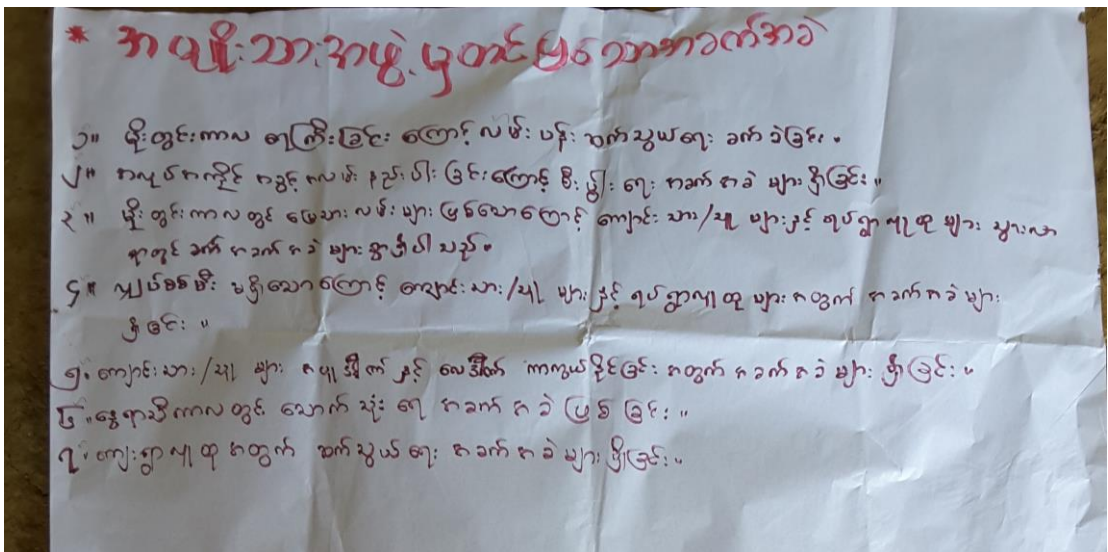 * အမျိုးသားအဖွဲ့မှတင်ပြသောအခက်အခဲ
၁။ မိုးတွင်းကာလ ရေကြီးခြင်း ကြောင့် လမ်း ပန်း ဆက်သွယ်ရေး ခက်ခဲခြင်း။
၂။ အလုပ်အကိုင် အခွင့်အလမ်း နည်းပါးခြင်းကြောင့် စီးပွါးရေး အခက်အခဲ များရှိခြင်း။
၃။ မိုးတွင်းကာလတွင် မြေသားလမ်းများဖြစ်သောကြောင့် ကျောင်းသား/သူ များနှင့် ရပ်ရွာလူထုများ သွားလာ
ရာတွင် ခက်အခက်အခဲများစွာရှိပါသည်။
၄။ လျှပ်စစ်မီး မရှိသောကြောင့် ကျောင်းသား/သူ များနှင့် ရပ်ရွာလူထုများအတွက် အခက်အခဲများ
ရှိခြင်း။
၅. ကျောင်းသား/သူ များ အပူဒါဏ် နှင့် လေဒါဏ် ကာကွယ်နိုင်ခြင်း အတွက် အခက်အခဲ များ ရှိခြင်း။
၆။ နွေရာသီကာလတွင် သောက်သုံးရေ အခက်အခဲ ဖြစ်ခြင်း။
၇. ကျေးရွာလူထုအတွက် ဆက်သွယ်ရေး အခက်အခဲများရှိခြင်း။